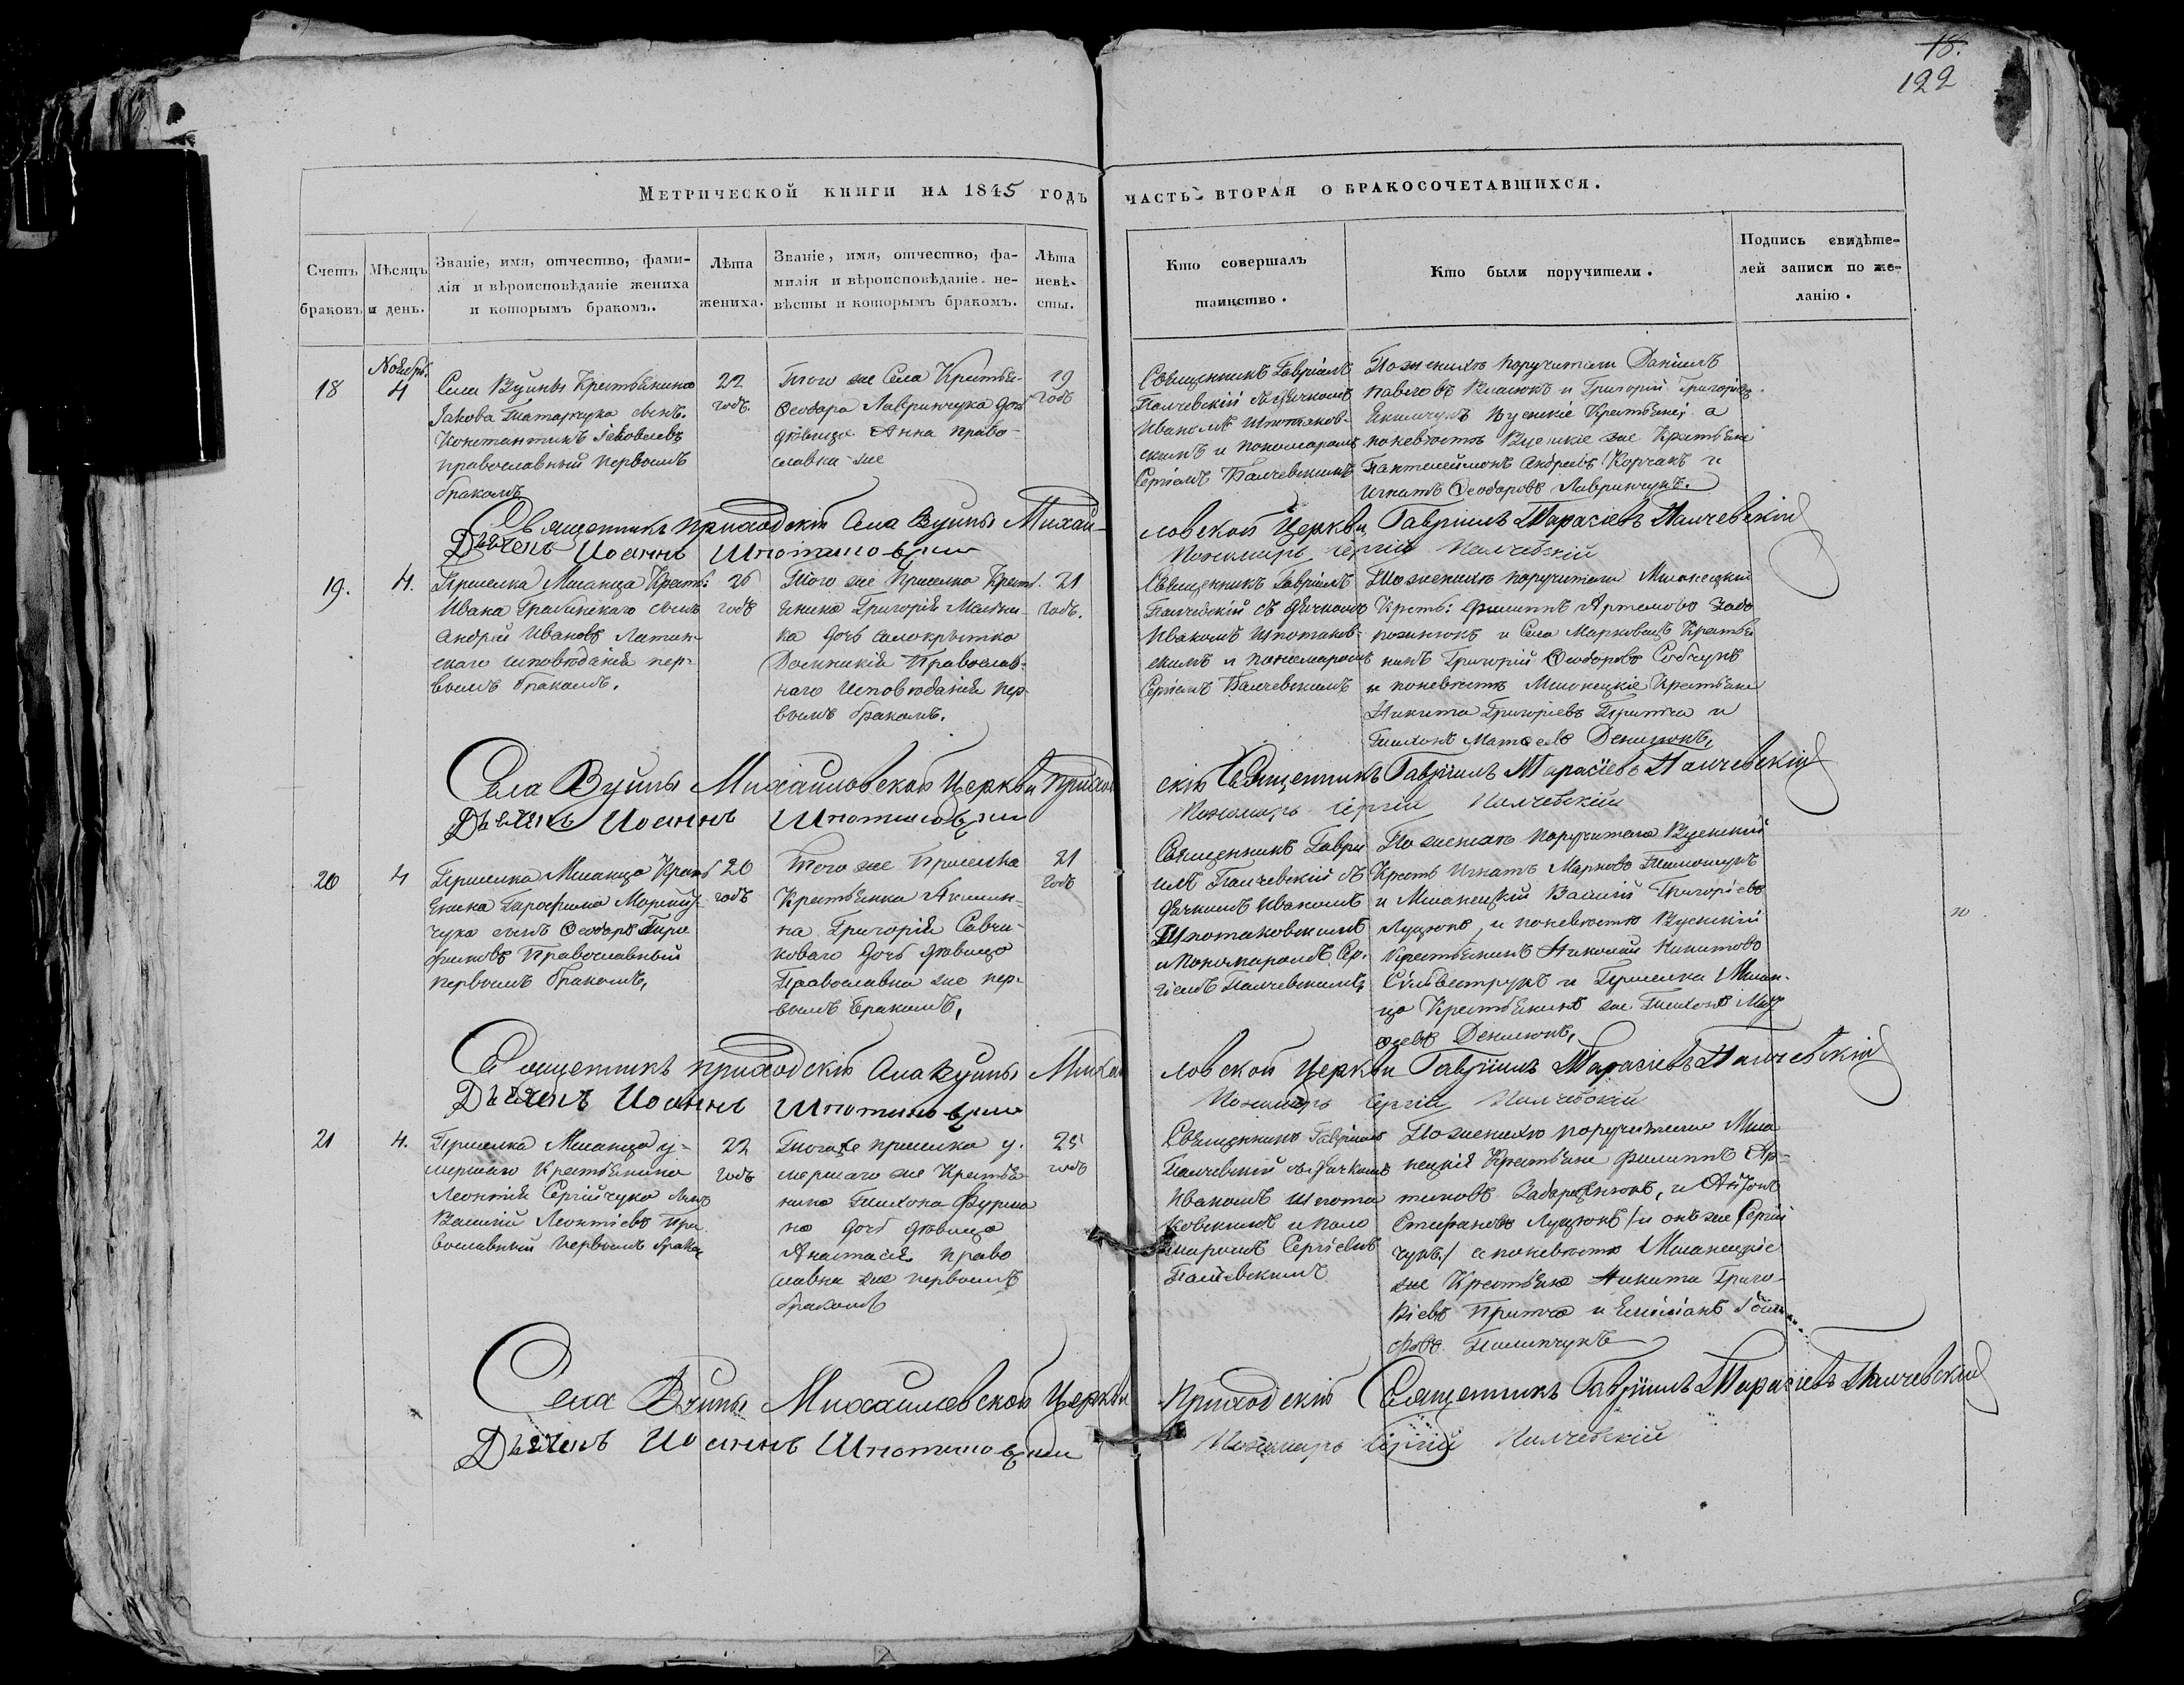 18.
122
Метрической книги на 1845 годъ
часть вторая о бракосочетавшихся.
Счетъ
браковъ
Мѣсяцъ
и день.
Званіе, имя, отчество, фами-
лія и вѣроисповѣданіе жениха
и которымъ бракомъ.
Лѣта
жениха.
Званіе, имя, отчество, фа-
милія и вѣроисповѣданіе не-
вѣсты и которымъ бракомъ.
Лѣта
невѣ-
сты.
Кто совершалъ
таинство.
Кто были поручители.
Подпись свидѣте-
лей записи по же-
ланію.
18
Ноябрь.
4
Села Вуины Крестьянина
Іакова Татарчука сынъ
Константинъ Іаковлевъ
православный первымъ
бракомъ
22
годъ.
Того же Села Крестьян-
Ѳеодора Лавринчука дочь
дѣвица Анна право-
славна же
19
годъ
Священникъ Гавріилъ
Палчевскій съ дячкомъ
Иваномъ Шпотаков-
скимъ и пономаромъ
Сергіемъ Палчевскимъ
По женихѣ поручители Даніилъ
Павловъ Власюкъ и Григорій Григоріевъ
Якимчукъ Вуенскіе Крестьяне, а
по невѣстѣ Вуенскіе же Крестьяне
Пантелеймонъ Андреевъ Корчакъ и
Игнатъ Ѳеодоровъ Лавринчукъ.
Священникъ приходскій Села Вуины Михай-
ловской Церкви Гавріилъ Тарасіевъ Палчевскій
Дьячекъ Иоаннъ Шпотаковскій
Пономарь Сергій Палчевскій
19.
4.
Приселка Мианца Кресть:
Ивана Грабинскаго сынъ
Андрей Ивановъ Латин-
скаго исповѣданія пер-
вымъ бракомъ.
26
годъ
Того же Приселка Кресть
янина Григорія
ка дочь
Доминикія Православ-
наго Исповѣданія пер-
вымъ бракомъ.
21
годъ.
Священникъ Гавріилъ
Палчевскій съ дячкомъ
Иваномъ Шпотаков-
скимъ и пономаромъ
Сергіемъ Палчевскимъ
По женихѣ поручители Мианецкій
Кресть: Филиппъ Артемовъ
и Села Марковецъ Крестья
нинъ Григорій Ѳеодоровъ Собчукъ
и по невѣстѣ Мианецкіе Крестьяне
Никита Григоріевъ Притча и
Тихонъ Матѳеевъ Денисюкъ,
Села Вуины Михайловской Церкви Приход
скій Священникъ Гавріилъ Тарасіевъ Палчевскій
Дьячекъ Иоаннъ Шпотаковскій
Пономарь Сергій Палчевскій
20
4
Приселка Мианца Кресть
янина Трофима
чука сынъ Ѳеодоръ Тро
фимовъ Православный
первымъ бракомъ,
20
годъ
Того же Приселка
Крестьянка Акилин-
на Григорія Савчу-
коваго дочь дѣвица
Православна же пер-
вымъ бракомъ,
21
годъ
Священникъ Гаври
илъ Палчевскій съ
дячкомъ Иваномъ
Шпотаковскимъ
и Пономаромъ Сер-
гіемъ Палчевскимъ
По женихѣ поручители Вуенскій
Кресть Игнатъ Марковъ Тимошукъ
и Мианецкій Василій Григоріевъ
Луцюкъ, и по невѣстѣ Вуенскій
Крестьянинъ Николай Никитовъ
Сильвеструкъ и Приселка Миан-
ца Крестьянинъ же Тихонъ Мат
ѳеевъ Денисюкъ,
Священникъ приходскій Села Вуины Михай
ловской Церкви Гавріилъ Тарасіевъ Палчевскій
Дьячекъ Иоаннъ Шпотаковскій
Пономарь Сергій Палчевскій
21
4.
Приселка Мианца у-
мершаго Крестьянина
Леонтія Сергійчука сынъ
Василій Леонтіевъ Пра
вославный первымъ брако
22
годъ
Того же приселка у-
мершаго же Крестья
нина Тихона Фурма
на дочь дѣвица
Анастасія право
славна же первымъ
бракомъ
25
годъ
Священникъ Гавріилъ
Палчевскій съ дячкомъ
Иваномъ Шпота
ковскимъ и поно
маромъ Сергіемъ
Палчевскимъ
По женихѣ поручители Миа
нецкія Крестьяне Филиппъ Ар-
, и Антонъ
Стефановъ Луцюкъ /и онъ же Сергій
чукъ/ а по невѣстѣ Мианецкіе
же Крестьяне Никита Григо-
ріевъ Притча и Емиліанъ Іоси
фовъ Пилипчукъ
Села Вуины Михайловской Церкви
Приходскій Священникъ Гавріилъ Тарасіевъ Палчевскій
Дьячекъ Иоаннъ Шпотаковскій
Пономарь Сергій Палчевскій